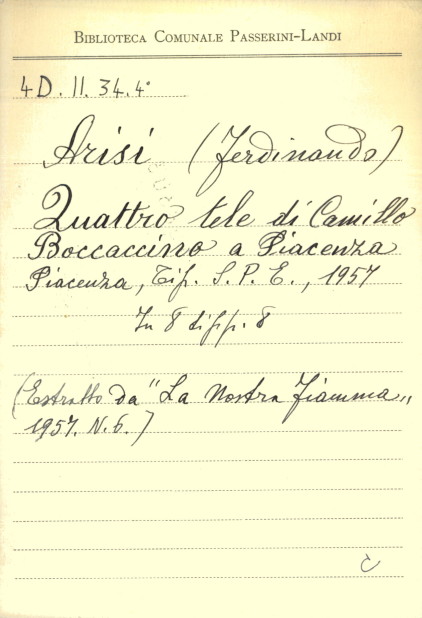 BIBLIOTECA COMUNALE PASSERINI-LANDI
4D. II. 34. 4°
Arisi (Ferdinando)
Quattro tele di Camillo
Boccaccino a Piacenza
Piacenza, Tip. S. P. E., 1957
In 8 di pp. 8
(Estratto da "La Nostra Fiamma„
1957. N. 6.)